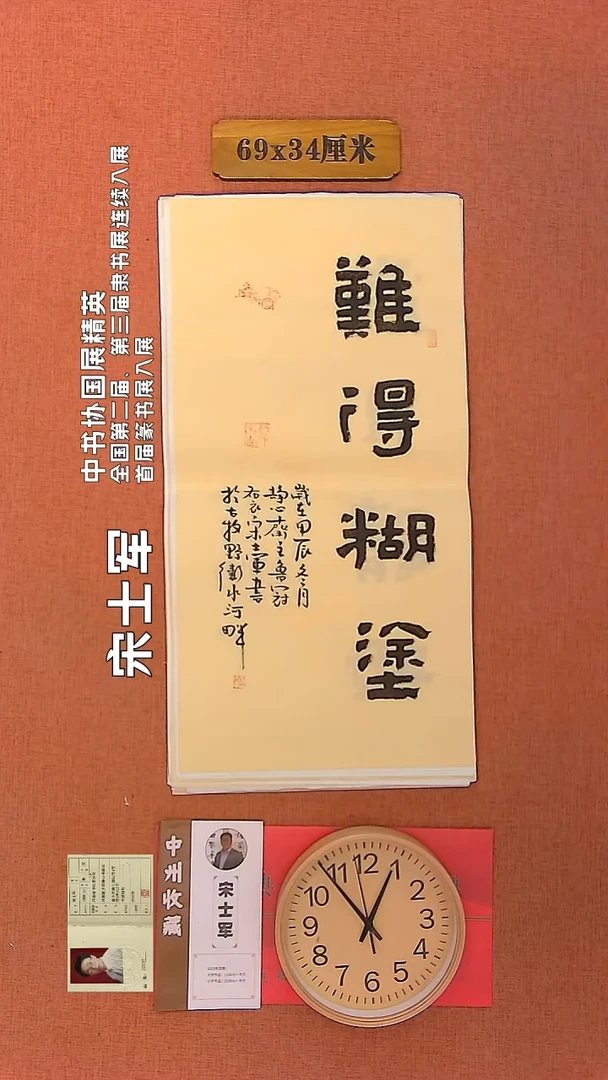 69x34厘米
難得糊塗
歲在甲辰冬月
静心齋主魯冠
布衣宋士軍書
於古牧野衛水河畔
宋士军
中书协国展精英
全国第二届、第三届隶书展连续入展
首届篆书展入展
中州收藏
宋士军
12
1
2
3
4
5
6
7
8
9
10
11